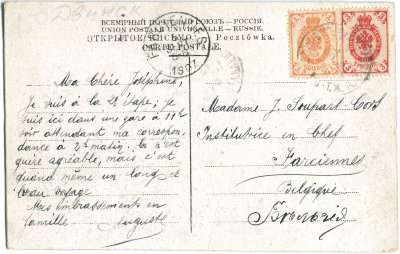 Двинск
ВСЕМІРНЫЙ ПОЧТОВЫЙ СОЮЗЪ.—РОССІЯ.
UNION POSTALE UNIVERSELLE.—RUSSIE.
ОТКРЫТОЕ ПИСЬМО. — Pocztówka.
CARTE POSTALE.
1907
Ma Chère Joséphine,
Je suis à la 2e étape; je
suis ici dans une gare à 11h
soir attendant ma correspon-
dance à 2h matin. Ce n'est
guère agréable, mais c'est
quand même un long et
beau voyage
Mes embrassements en
famille Auguste
Madame J. Soupart
Institutrice en Chef
Farciennes
Belgique
Бельгія